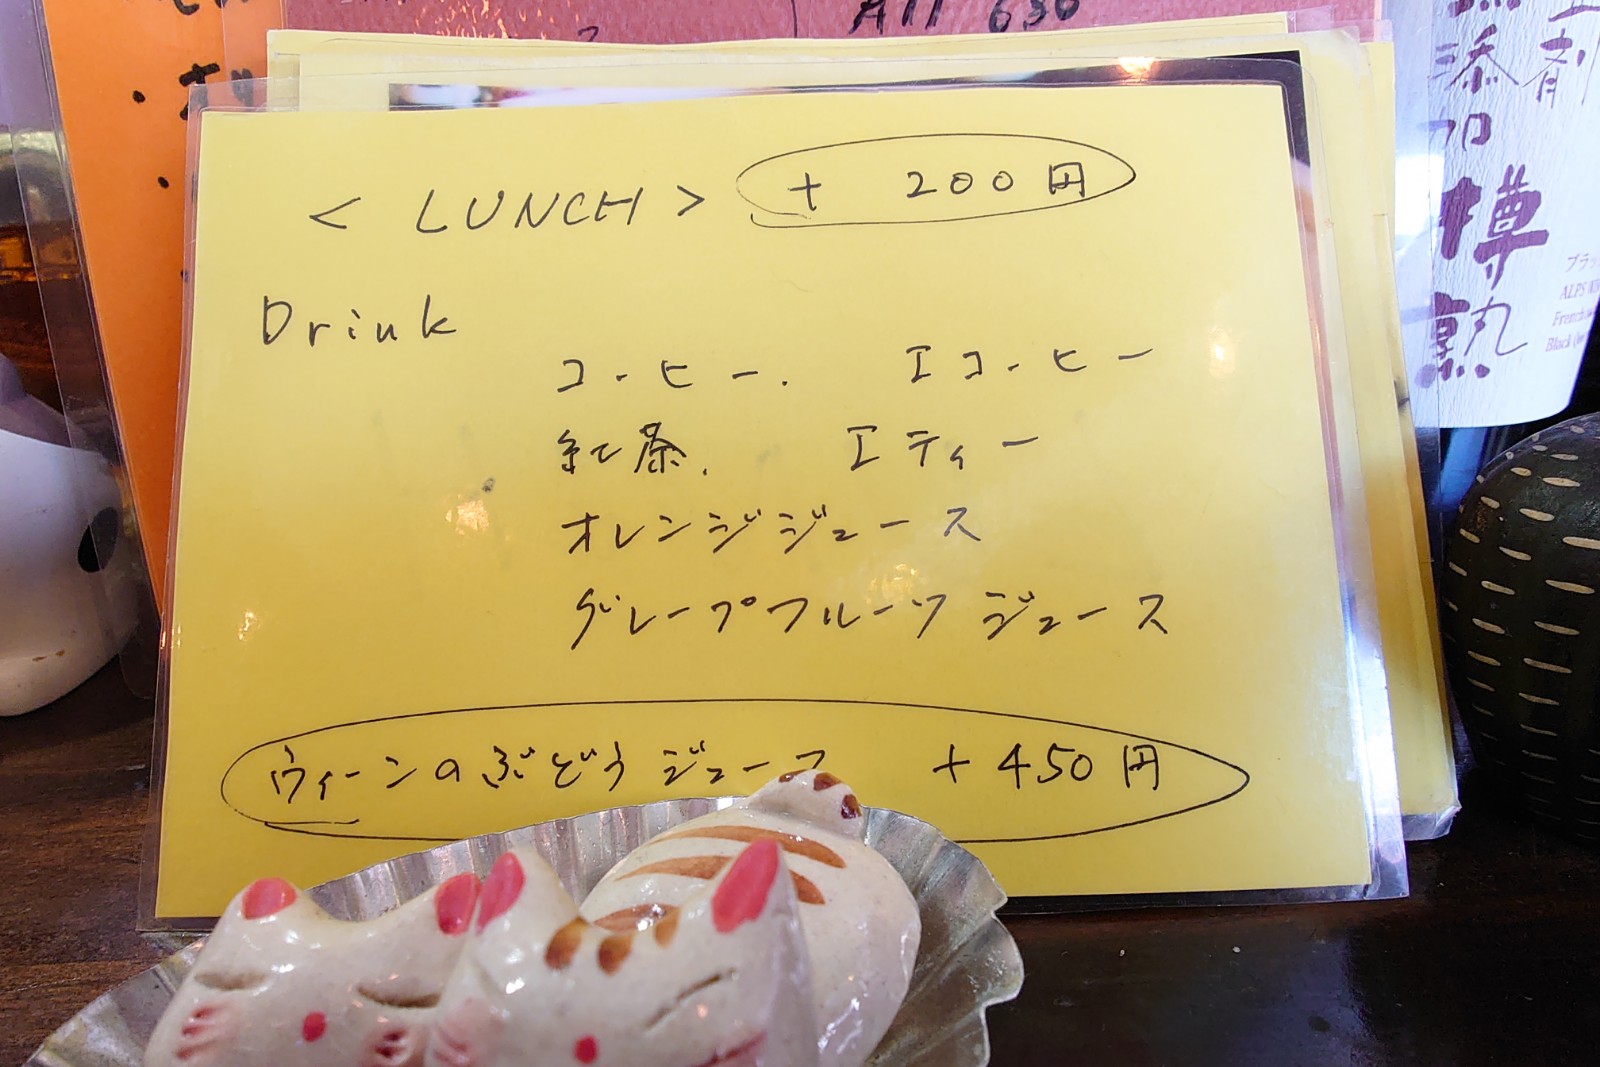 A11 630
< LUNCH > + 200円
Drink
コーヒー. Iコーヒー
紅茶. Iティー
オレンジジュース
グレープフルーツジュース
ウィーンのぶどうジュース +450円
添加
剤
樽
熟
ブラッ
ALPS
French
Black